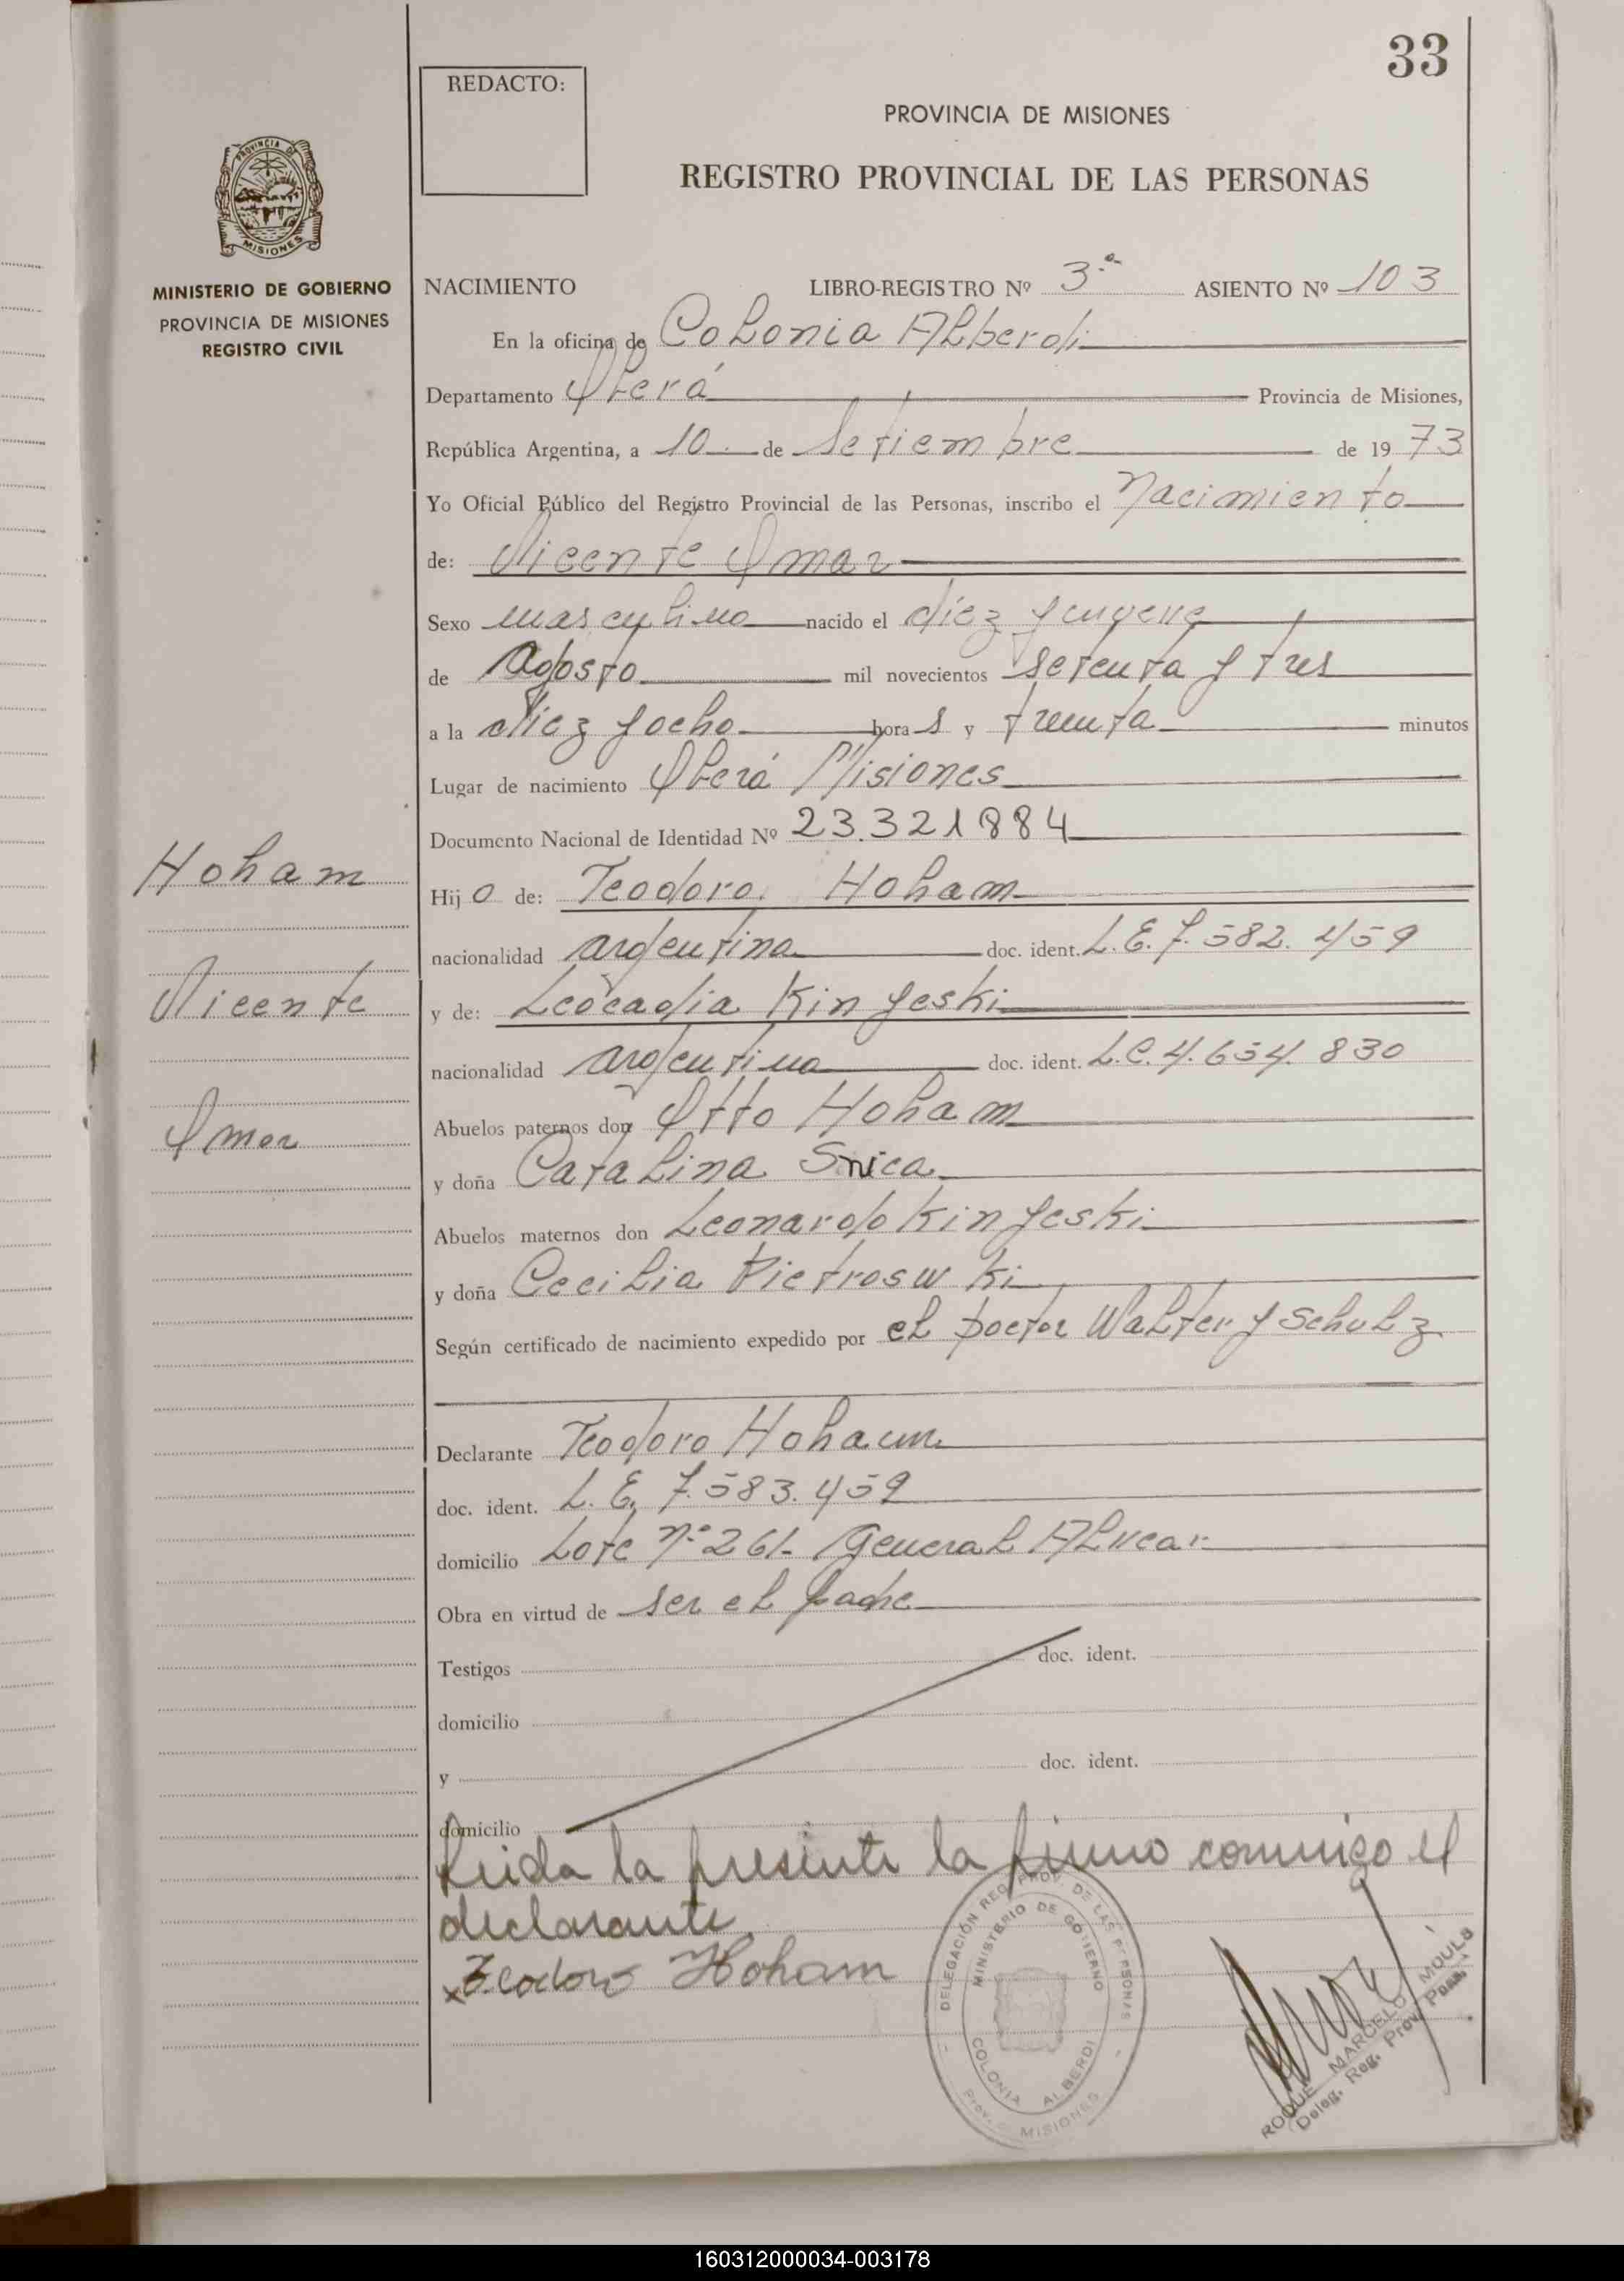 33
REDACTO:
PROVINCIA DE MISIONES
REGISTRO PROVINCIAL DE LAS PERSONAS
PROVINCIA DE
MISIONES
MINISTERIO DE GOBIERNO
PROVINCIA DE MISIONES
REGISTRO CIVIL
NACIMIENTO LIBRO-REGISTRO Nº 3.ª ASIENTO Nº 103
En la oficina de Colonia Alberdi
Departamento Oberá Provincia de Misiones,
República Argentina, a 10 de Setiembre de 1973
Yo Oficial Público del Registro Provincial de las Personas, inscribo el Nacimiento
de: Vicente Omar
Sexo masculino nacido el diez y nueve
de Agosto mil novecientos setenta y tres
a la diez y ocho hora s y treinta minutos
Lugar de nacimiento Oberá Misiones
Documento Nacional de Identidad Nº 23.321884
Hoham
Hij o de: Teodoro Hoham
nacionalidad argentina doc. ident. L.E. 7.582.459
Vicente
y de: Leocadia Kinyeski
nacionalidad argentina doc. ident. L.C. 4.654.830
Omar
Abuelos paternos don Otto Hoham
y doña Catalina Snica
Abuelos maternos don Leonardo Kinyeski
y doña Cecilia Pietroswki
Según certificado de nacimiento expedido por el Doctor Walter y Schulz
Declarante Teodoro Hoham
doc. ident. L.E. 7.583.459
domicilio Lote nº 261- General Alvear
Obra en virtud de ser el padre
Testigos doc. ident.
domicilio
y doc. ident.
domicilio
Leida la presente la firmo conmigo el
declarante
x Teodoro Hoham
DELEGACIÓN REG. PROV. DE LAS PERSONAS
MINISTERIO DE GOBIERNO
COLONIA ALBERDI
PROV. MISIONES
ROQUE MARCELO MOULO
Deleg. Reg. Prov. Pers.
160312000034-003178